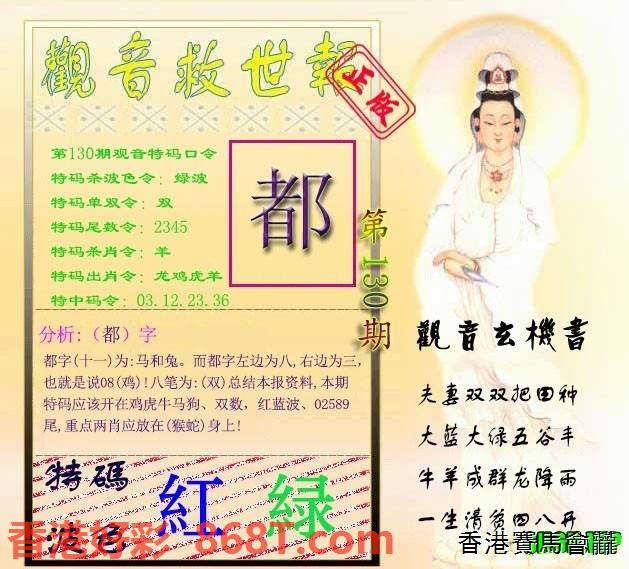 觀音救世報
正版
第130期观音特码口令
特码杀波色令：绿波
特码单双令：双
特码尾数令：2345
特码杀肖令：羊
特码出肖令：龙鸡虎羊
特中码令：03.12.23.36
都
第130期
分析:（都）字
都字(十一)为:马和兔。而都字左边为八,右边为三,
也就是说08(鸡)!八笔为:(双)总结本报资料,本期
特码应该开在鸡虎牛马狗、双数，红蓝波、02589
尾,重点两肖应放在(猴蛇)身上!
特碼
波色
紅 绿
香港好彩 868T.com
觀音玄機書
夫妻双双把田种
大蓝大绿五谷丰
牛羊成群龙降雨
一生清贫四八开
香港賽馬會